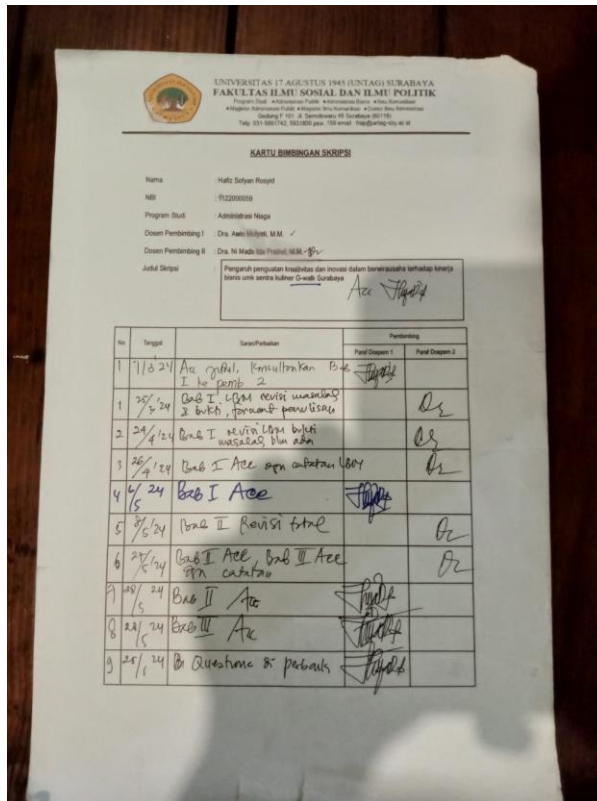 UNIVERSITAS 17 AGUSTUS 1945 (UNTAG) SURABAYA
FAKULTAS ILMU SOSIAL DAN ILMU POLITIK
Program Studi • Administrasi Publik • Administrasi Bisnis • Ilmu Komunikasi
• Magister Administrasi Publik • Magister Ilmu Komunikasi • Doktor Ilmu Administrasi
Gedung F 101 Jl. Semolowaru 45 Surabaya (60118)
KARTU BIMBINGAN SKRIPSI
Nama : Hafiz Sofyan Rosyid
NBI : 1122000059
Program Studi : Administrasi Niaga
Dosen Pembimbing I : Dra. M.M.
Dosen Pembimbing II : Dra. Ni Made M.M.
Judul Skripsi : Pengaruh penguatan kreativitas dan inovasi dalam berwirausaha terhadap kinerja
bisnis umk sentra kuliner G-walk Surabaya
Acc
No Tanggal Saran/Perbaikan Pembimbing
Paraf Dospem 1 Paraf Dospem 2
1 7/3 24 Acc judul, Konsultasikan Bab
I ke pemb 2
1 25/3 '24 Bab I. LBM revisi masalah
& bukti, format penulisan
2 24/4 '24 Bab I revisi LBM bukti
masalah blm ada
3 26/4 '24 Bab I Acc dgn catatan LBM
4 6/5 24 Bab I Acc
5 /5 '24 Bab II Revisi total
6 /5 '24 Bab II Acc, Bab III Acc
dgn catatan
7 /5 24 Bab II Acc
8 /5 24 Bab III Acc
9 24 Questione di